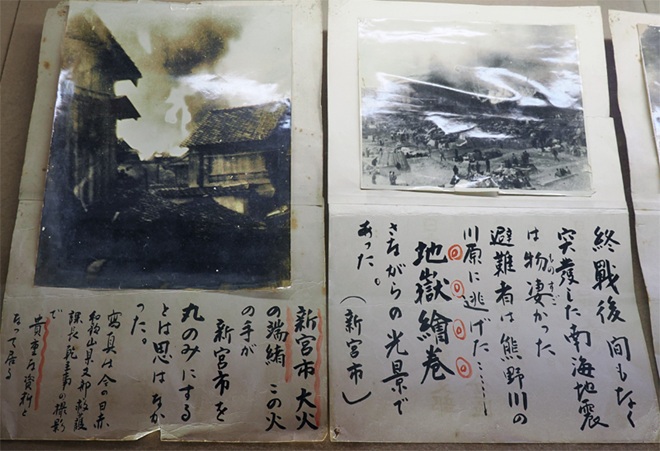 終戰後 間もなく
突発した南海地震
は物凄かった
ものすご
避難者は熊野川の
川原に逃げた……
地獄繪巻
さながらの光景で
あった。
(新宮市)
新宮市大火
の端緒 この火
の手が
新宮市を
丸のみにする
とは思はなか
った。
寫真は今の日赤
和歌山県支部救護
課長 の撮影
で
貴重な資料と
なって居る